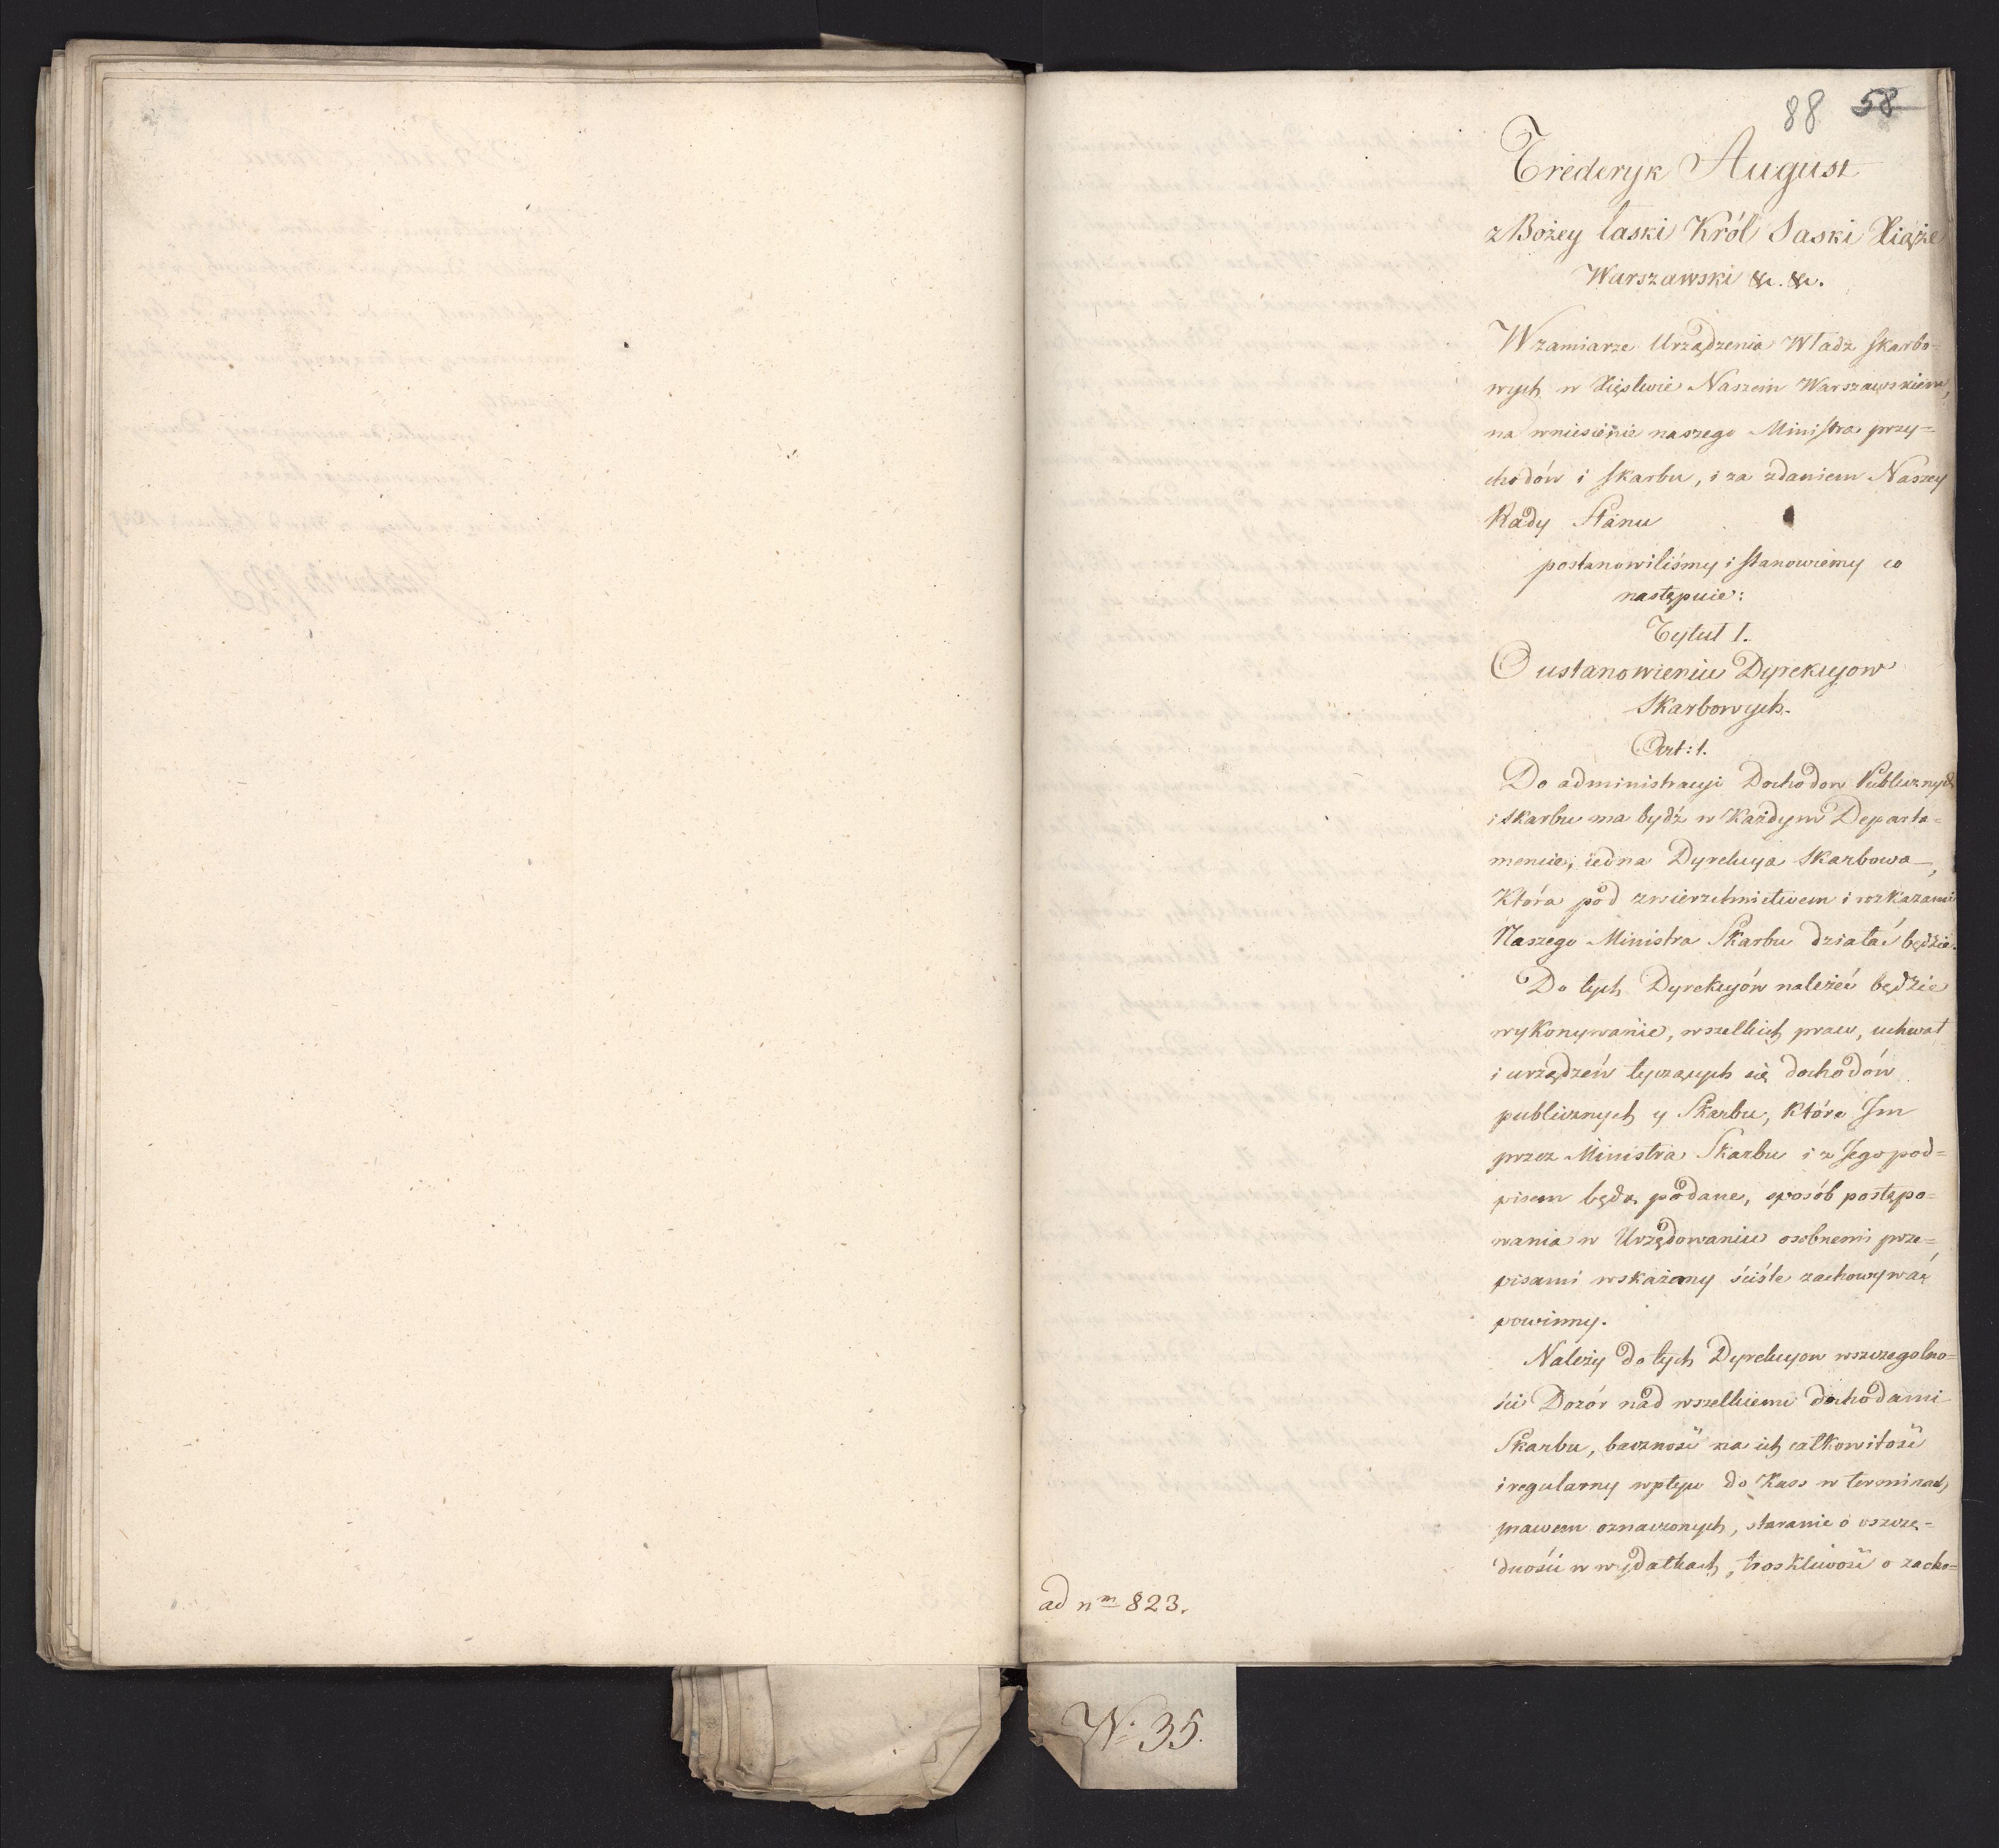 88 58
Frederyk August
z Bożey łaski Król Saski Xiąże
Warszawski &c. &c.
W zamiarze Urządzenia Władz skarbo=
wych w Xięstwie Naszem Warszawskiem,
na wniesienie naszego Ministra przy=
chodów i skarbu, i za zdaniem Naszey
Rady Stanu
postanowiliśmy i stanowiemy co
następuie:
Tytuł I.
O ustanowieniu Dyrekcyow
Skarbowych.
Art: 1.
Do administracyi Dochodow Publicznych
i skarbu ma bydź w Każdym Departa=
mencie, iedna Dyrekcya Skarbowa,
Która pod zwierzchnictwem i rozkazami
Naszego Ministra Skarbu działać będzie.
Do tych Dyrekcyów należeć będzie
wykonywanie, wszelkich praw, uchwał
i urządzeń tyczących się dochodów
publicznych y Skarbu, Które Im
przez Ministra Skarbu i z Jego pod=
pisem będą podane, sposób postępo=
wania w Urzędowaniu osobnemi prze=
pisami wskazany ściśle zachowywać
powinny.
Należy do tych Dyrekcyow wszczegolno=
ści Dozór nad wszelkiemi dochodami
Skarbu, baczność na ich całkowitość
i regularny wpływ do Kass w terminach
prawem oznaczonych, staranie o oszczę=
dności w wydatkach, troskliwość o zacho=
ad nm 823.
No 35.